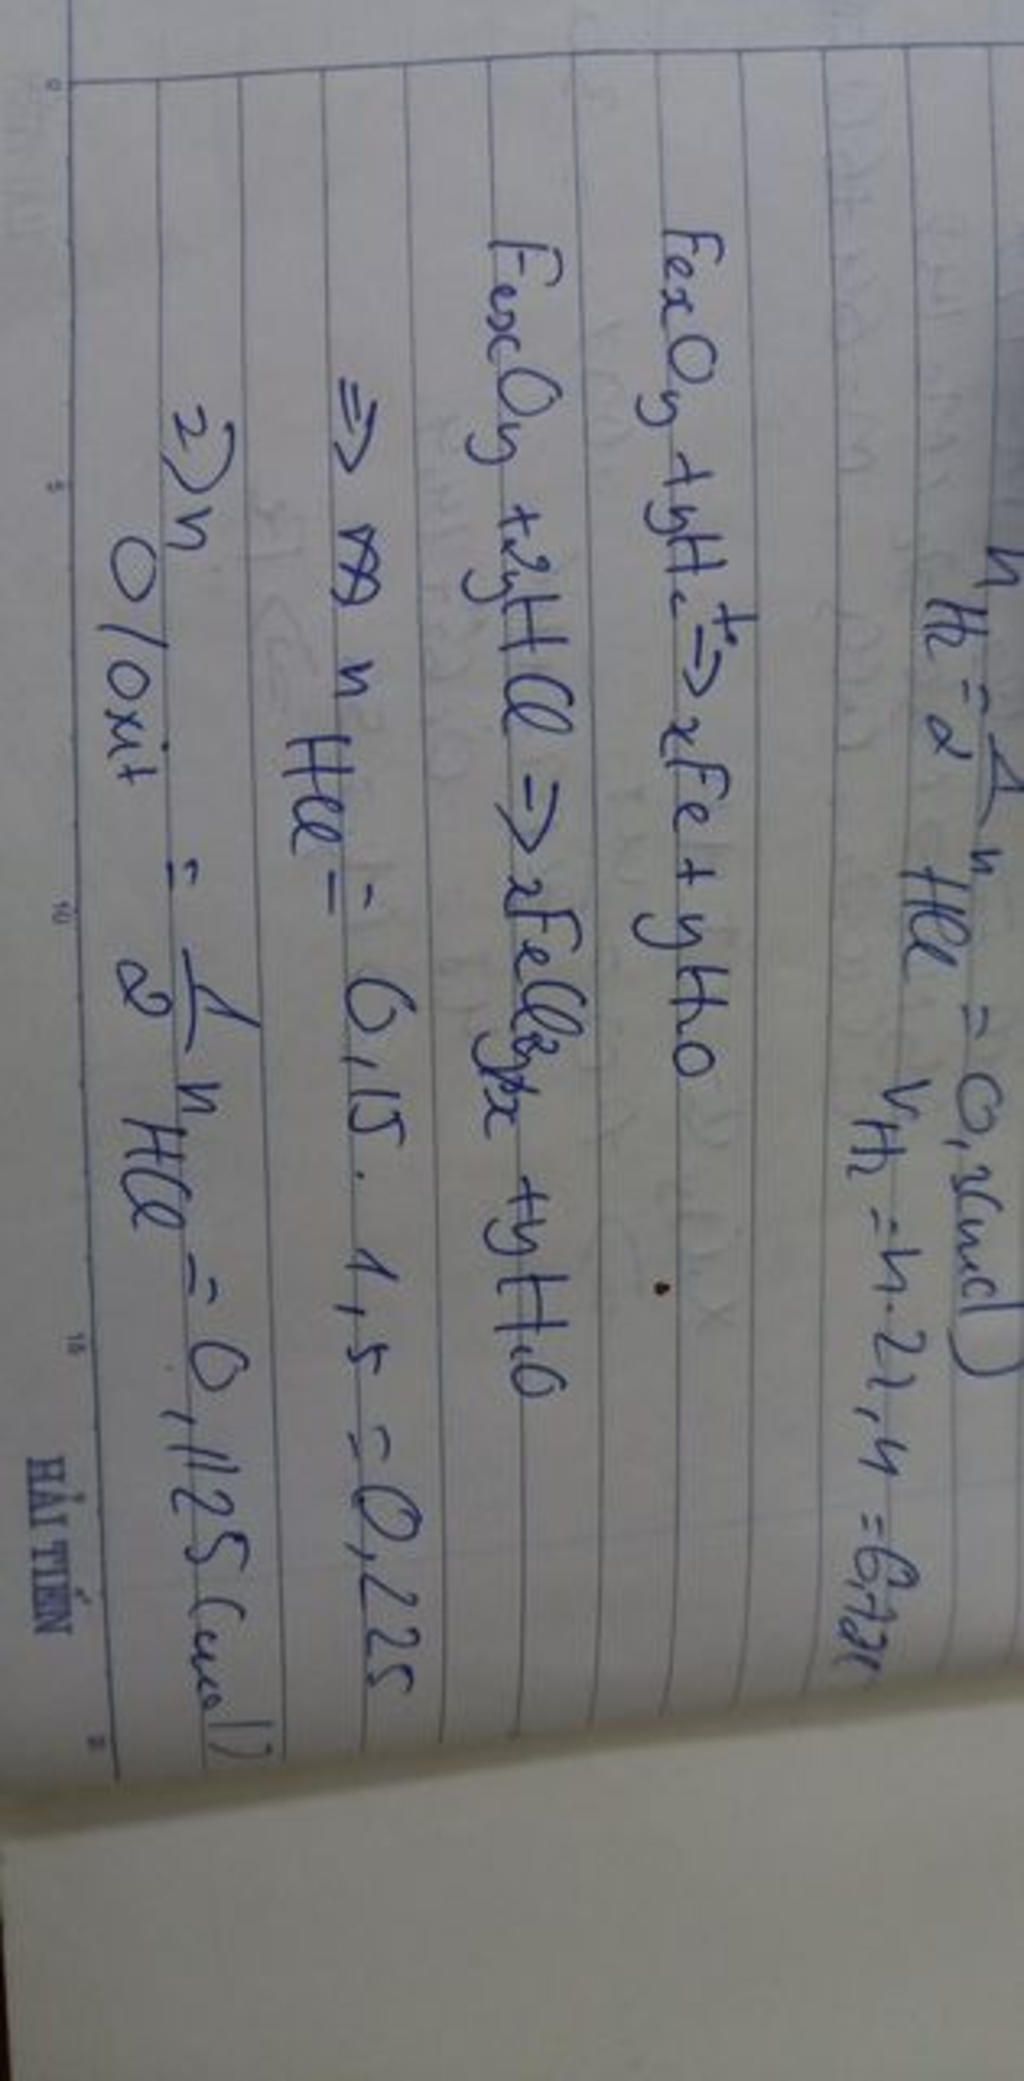 n H2 = 1/2 n HCl = 0,3(mol)
VH2 = n.22,4 = 6,72l
FexOy + yH2 t° => xFe + yH2O
FexOy + 2yHCl => xFeCl2y/x + yH2O
=> n HCl = 0,15. 1,5 = 0,225
=> n O/oxit = 1/2 n HCl = 0,1125 (mol)
0 5 10 15
HẢI TIẾN